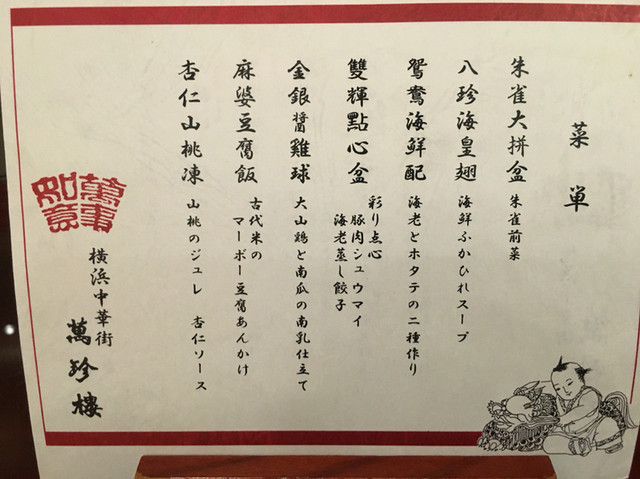 菜単
朱雀大拼盆 朱雀前菜
八珍海皇翅 海鮮ふかひれスープ
鴛鴦海鮮配 海老とホタテの二種作り
雙輝點心盆 彩り点心
豚肉シュウマイ
海老蒸し餃子
金銀醬雞球 大山鶏と南瓜の南乳仕立て
麻婆豆腐飯 古代米の
マーボー豆腐あんかけ
杏仁山桃凍 山桃のジュレ 杏仁ソース
萬事
如意
横浜中華街
萬珍樓